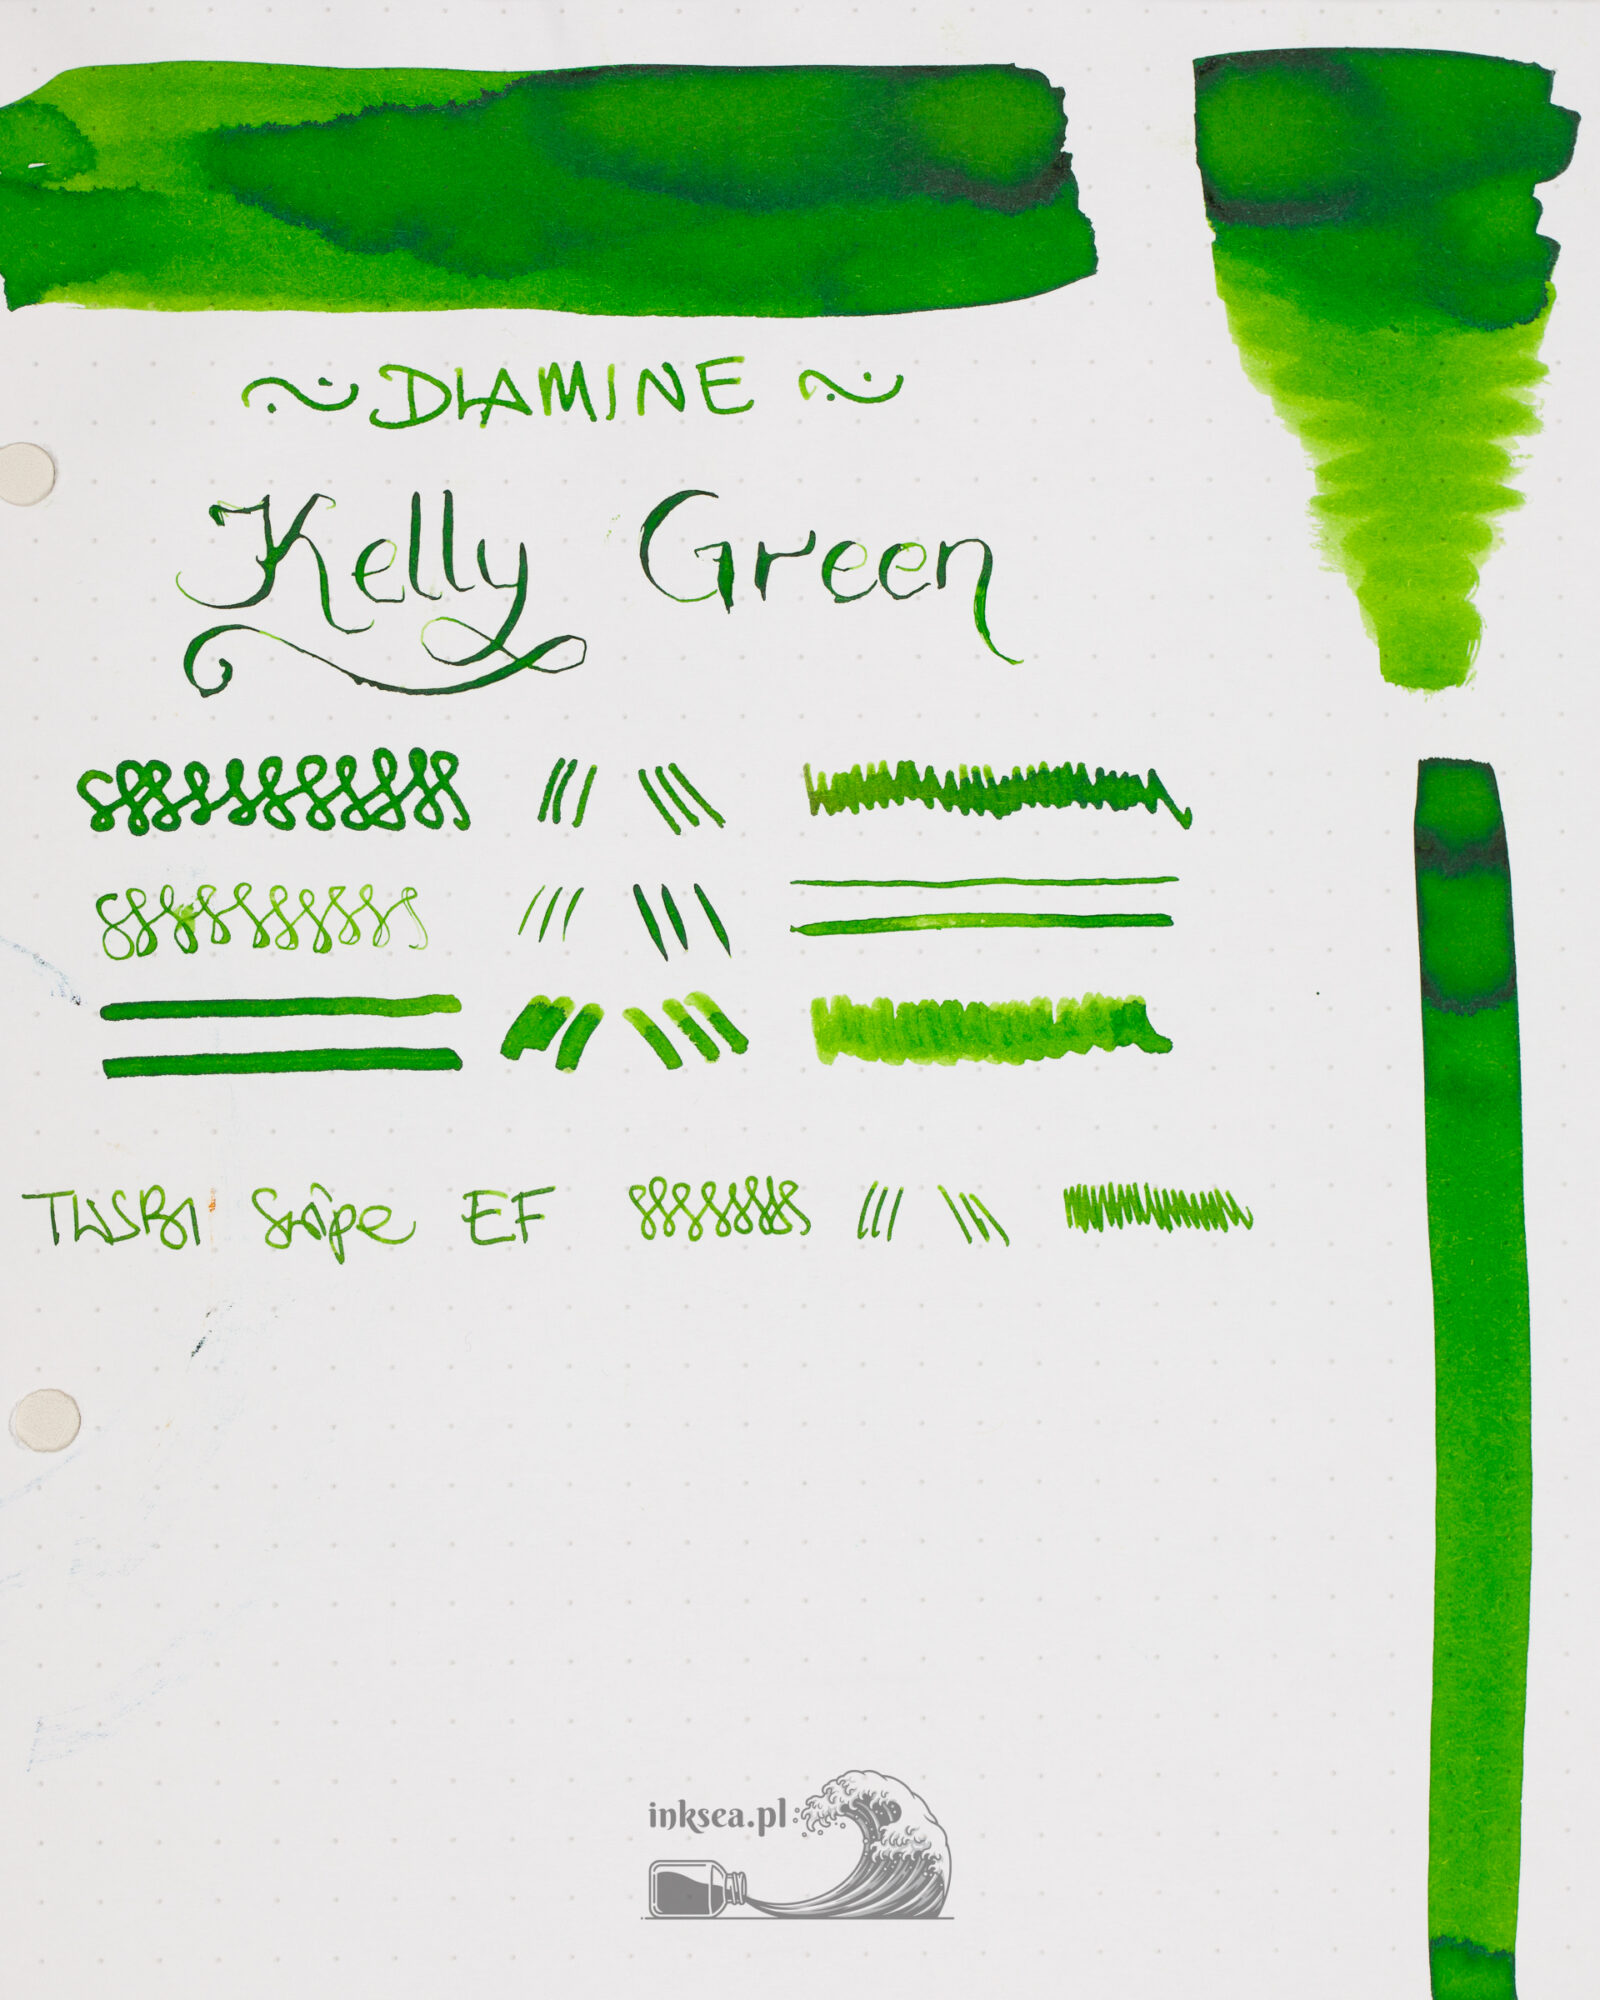 ~ DIAMINE ~
Kelly Green
TWSBI Swipe EF
inksea.pl